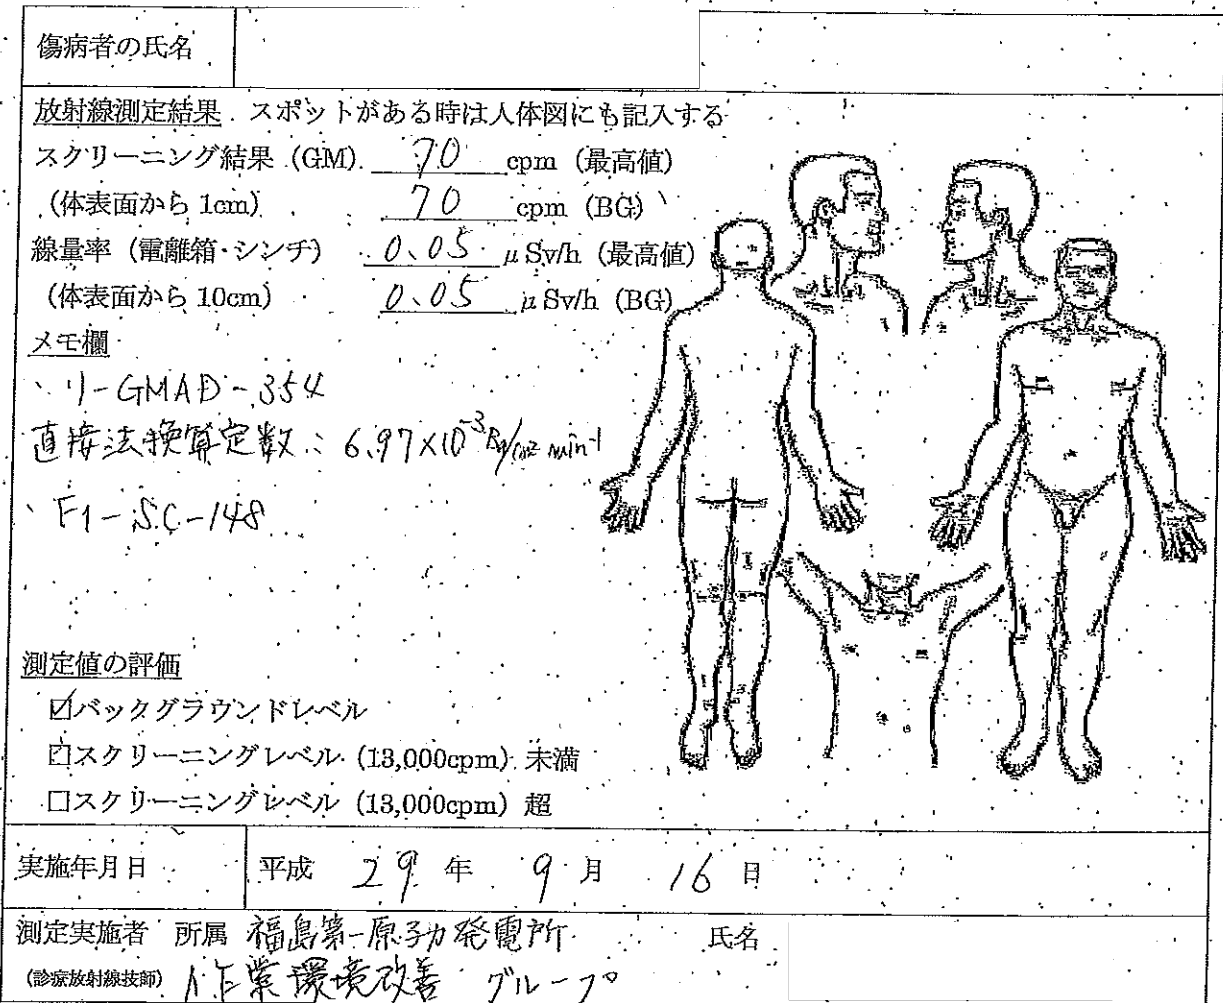 傷病者の氏名
放射線測定結果 スポットがある時は人体図にも記入する
スクリーニング結果 (GM) 70 cpm (最高値)
(体表面から 1cm) 70 cpm (BG)
線量率 (電離箱・シンチ) 0.05 μSv/h (最高値)
(体表面から 10cm) 0.05 μSv/h (BG)
メモ欄
・リ-GMAD-354
直接法換算定数: 6.97×10⁻³ Bq/cm² min⁻¹
・F1-SC-148
測定値の評価
☑バックグラウンドレベル
□スクリーニングレベル (13,000cpm) 未満
□スクリーニングレベル (13,000cpm) 超
実施年月日 平成 29 年 9 月 16 日
測定実施者 所属 福島第一原子力発電所 氏名
(診療放射線技師) 作業環境改善 グループ